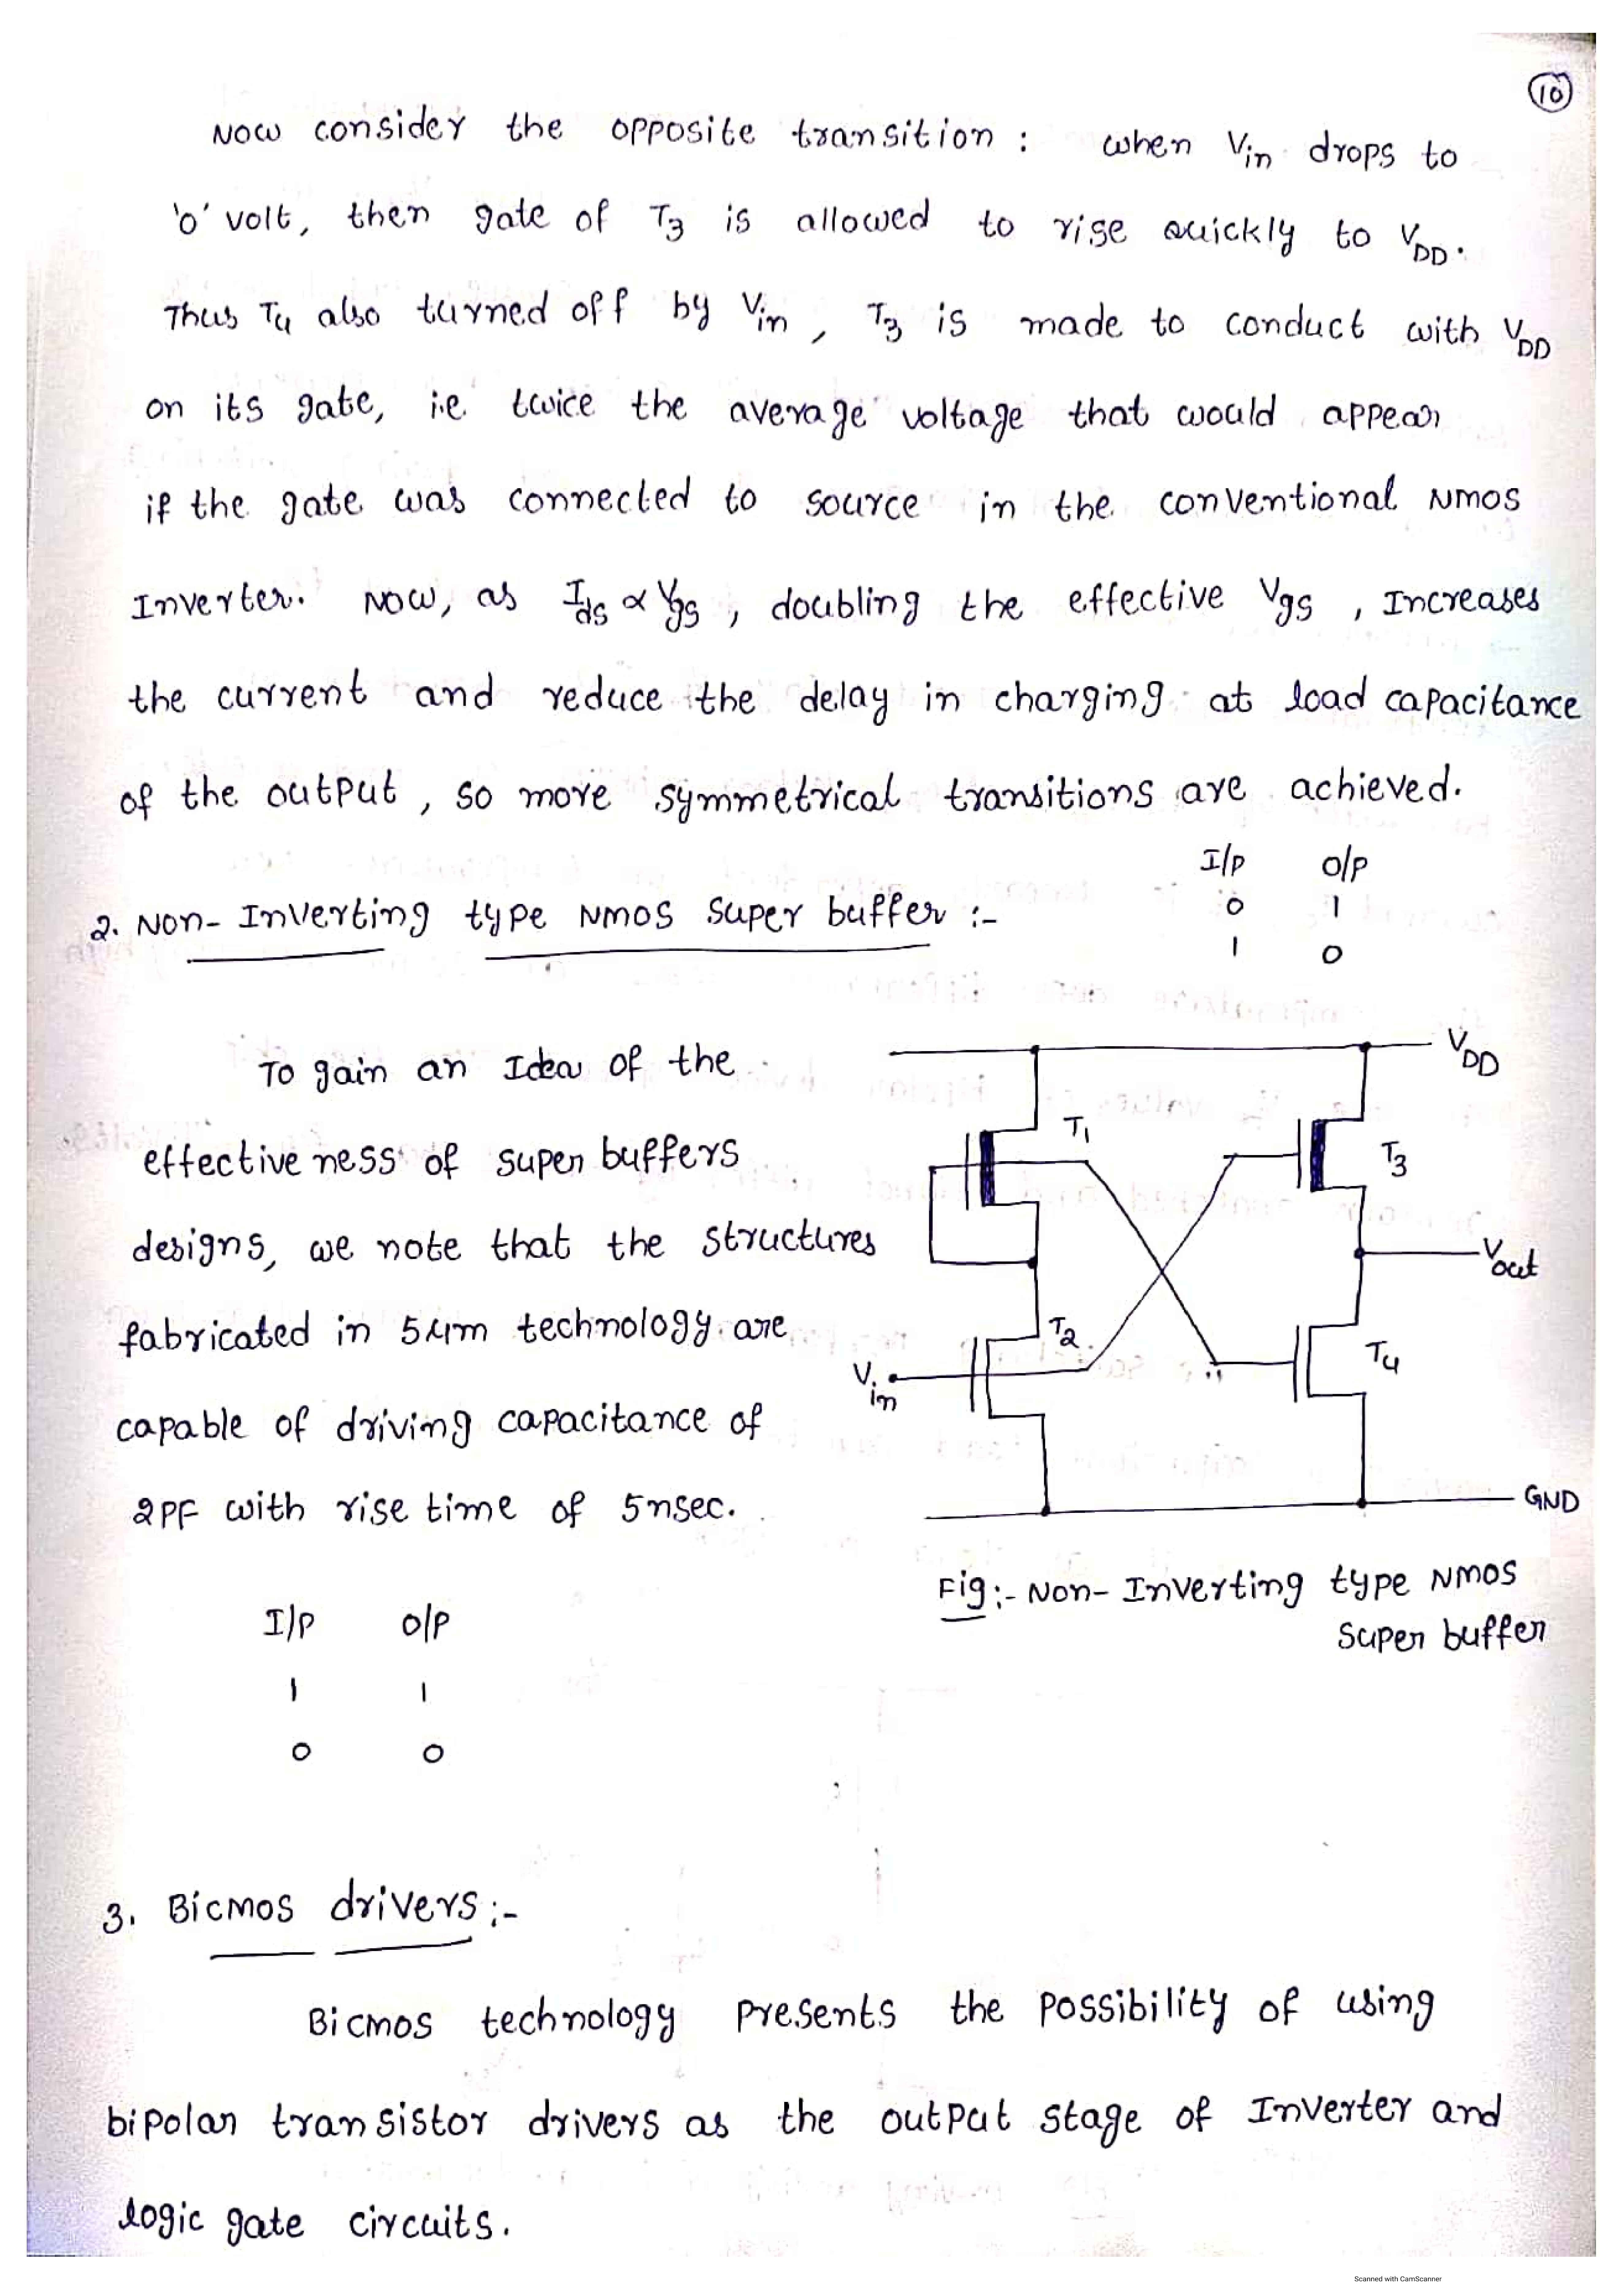 10
Now consider the opposite transition : when Vin drops to
'0' volt, then gate of T3 is allowed to rise quickly to VDD.
Thus T4 also turned off by Vin , T3 is made to conduct with VDD
on its gate, i.e twice the average voltage that would appear
if the gate was connected to source in the conventional NMOS
Inverter. Now, as Ids ∝ Vgs , doubling the effective Vgs , Increases
the current and reduce the delay in charging at load capacitance
of the output , so more symmetrical transitions are achieved.
I/p O/p
0 1
1 0
2. Non-Inverting type NMOS Super buffer :-
To gain an Idea of the
effective ness of super buffers
designs, we note that the structures
fabricated in 5μm technology are
capable of driving capacitance of
2PF with rise time of 5nsec.
VDD
T1
T3
Vout
T2
T4
Vin
GND
Fig:- Non-Inverting type NMOS
Super buffer
I/p O/p
1 1
0 0
3. Bicmos drivers:-
Bicmos technology presents the possibility of using
bipolar transistor drivers as the output stage of Inverter and
logic gate circuits.
Scanned with CamScanner